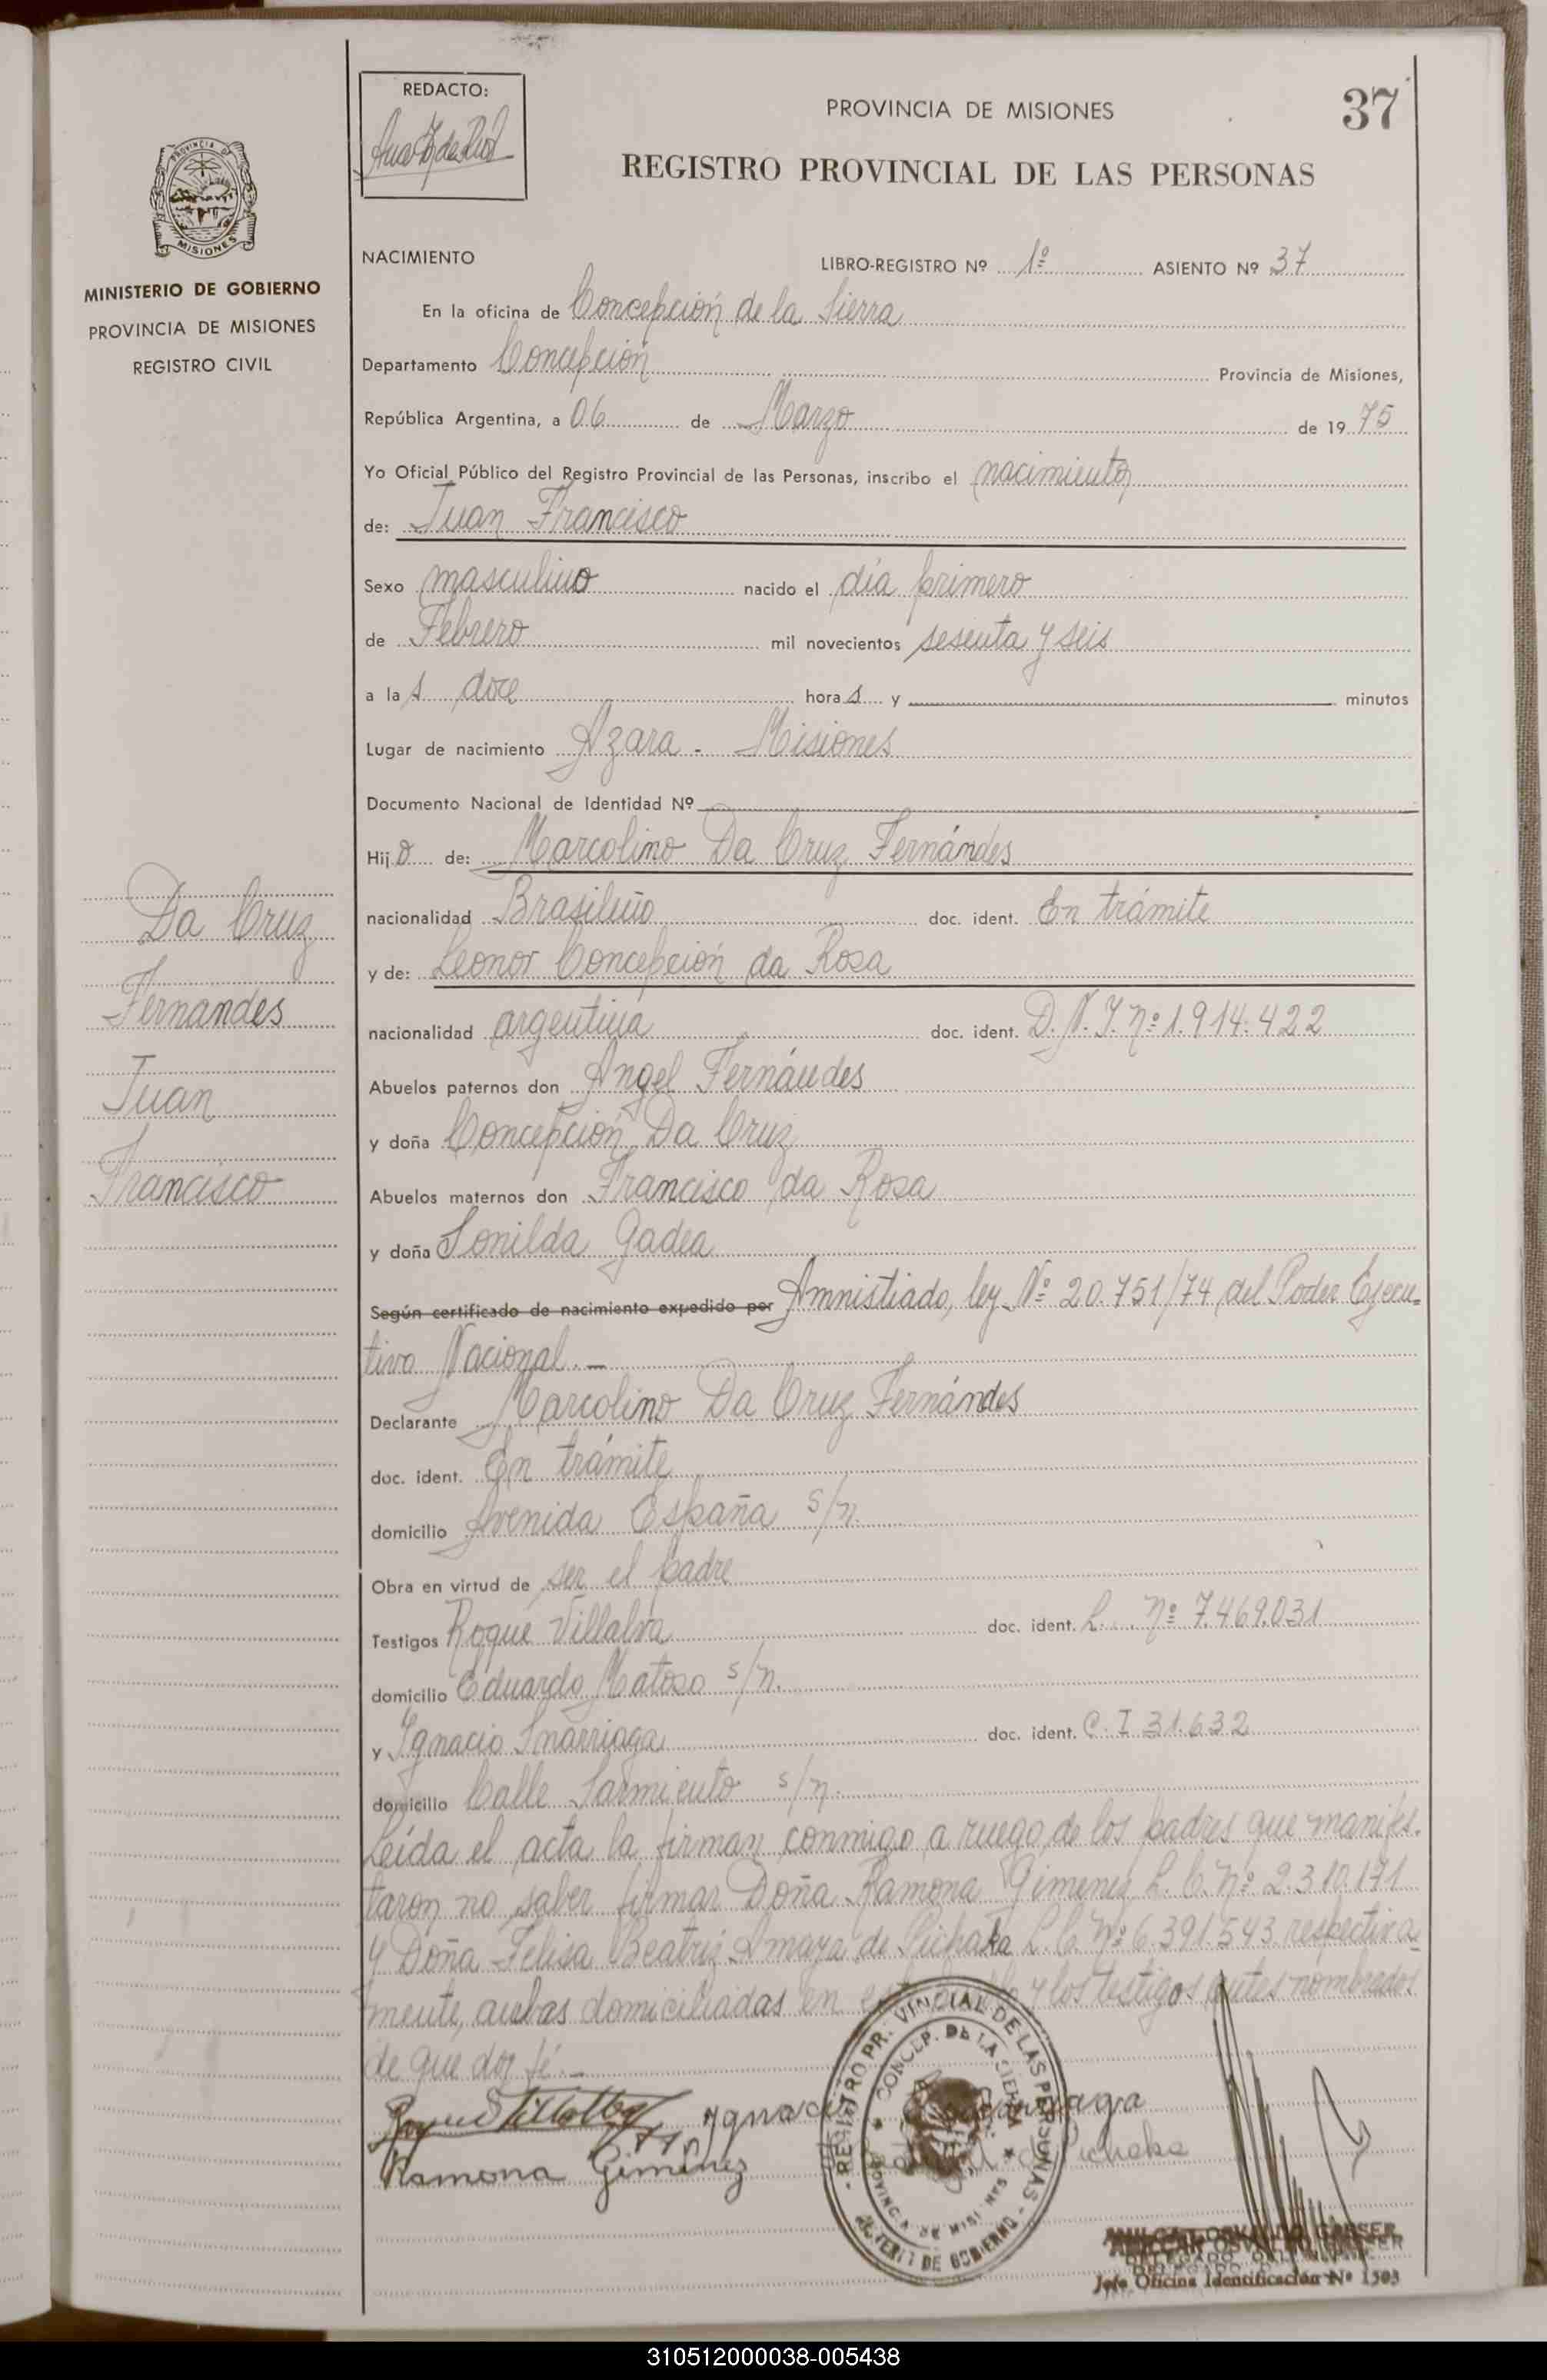 REDACTO:
PROVINCIA DE MISIONES
37
REGISTRO PROVINCIAL DE LAS PERSONAS
PROVINCIA DE
MISIONES
MINISTERIO DE GOBIERNO
PROVINCIA DE MISIONES
REGISTRO CIVIL
NACIMIENTO
LIBRO-REGISTRO Nº 1º ASIENTO Nº 37
En la oficina de Concepción de la Sierra
Departamento Concepción Provincia de Misiones,
República Argentina, a 06 de Marzo de 1975
Yo Oficial Público del Registro Provincial de las Personas, inscribo el nacimiento
de: Juan Francisco
Sexo masculino nacido el día primero
de Febrero mil novecientos sesenta y seis
a las doce horas y minutos
Lugar de nacimiento Azara - Misiones
Documento Nacional de Identidad Nº
Hijo de: Marcolino Da Cruz Fernándes
nacionalidad Brasileño doc. ident. En trámite
y de: Leonor Concepción da Rosa
nacionalidad argentina doc. ident. D.N.I. nº 1.914.422
Abuelos paternos don Ángel Fernándes
y doña Concepción Da Cruz
Abuelos maternos don Francisco da Rosa
y doña Sonilda Gadea
Según certificado de nacimiento expedido por Amnistiado, ley Nº 20.751/74 del Poder Ejecu-
tivo Nacional.-
Declarante Marcolino Da Cruz Fernándes
doc. ident. En trámite
domicilio Avenida España s/n.
Obra en virtud de ser el padre
Testigos Roque Villalva doc. ident. L. nº 7.469.031
domicilio Eduardo Matoso s/n.
y Ignacio Inarriaga doc. ident. C.I 31.632
domicilio Calle Sarmiento s/n.
Leída el acta la firman conmigo a ruego de los padres que manifes-
taron no saber firmar Doña Ramona Gimenez L.C. nº 2.310.171
y Doña Felisa Beatriz Amaya de Pichaka L.C. nº 6.391.543 respectiva-
mente, ambas domiciliadas en y los testigos antes nombrados
de que doy fé.-
Da Cruz
Fernandes
Juan
Francisco
Ignacio
Ramona Giménez
de Pichaka
REGISTRO PROVINCIAL DE LAS PERSONAS
CONCEP. DE LA SIERRA
PROVINCIA DE MISIONES
DE GOBIERNO
OSVALDO GASSER
DELEGADO
Jefe Oficina Identificación Nº 1503
310512000038-005438